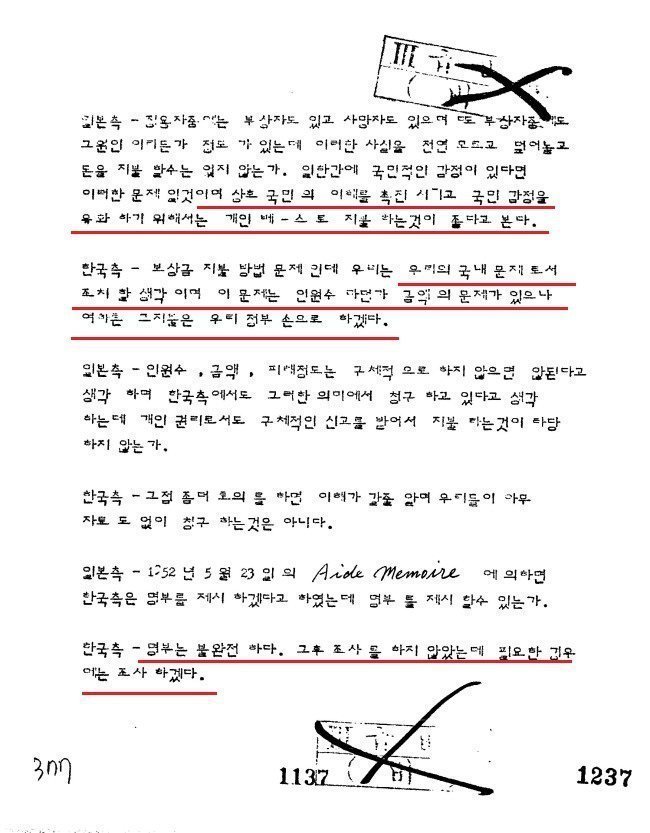 일본측 - 징용자중에는 부상자도 있고 사망자도 있으며 또 부상자중에도
그원인 이라든가 정도 가 있는데 이러한 사실을 전연 모르고 덮어놓고
돈을 지불 할수는 없지 않는가. 일한간에 국민적인 감정이 있다면
이러한 문제 일것이며 상호 국민 의 이해를 촉진 시키고 국민 감정을
유화 하기 위해서는 개인 베-스 로 지불 하는것이 좋다고 본다.
한국측 - 보상금 지불 방법 문제 인데 우리는 우리의 국내 문제 로서
조처 할 생각 이며 이 문제는 인원수 라던가 금액 의 문제가 있으나
여하튼 그지불은 우리 정부 손으로 하겠다.
일본측 - 인원수 , 금액 , 피해정도는 구체적 으로 하지 않으면 않된다고
생각 하며 한국측에서도 그러한 의미에서 청구 하고 있다고 생각
하는데 개인 권리로서도 구체적인 신고를 받어서 지불 하는것이 타당
하지 않는가.
한국측 - 그점 좀더 토의 를 하면 이해가 갈줄 알며 우리들이 아무
자료 도 없이 청구 하는것은 아니다.
일본측 - 1952 년 5 월 23 일 의 Aide Memoire 에 의하면
한국측은 명부를 제시 하겠다고 하였는데 명부 를 제시 할수 있는가.
한국측 - 명부는 불완전 하다. 그후 조사 를 하지 않았는데 필요한 경우
에는 조사 하겠다.
1137
1237